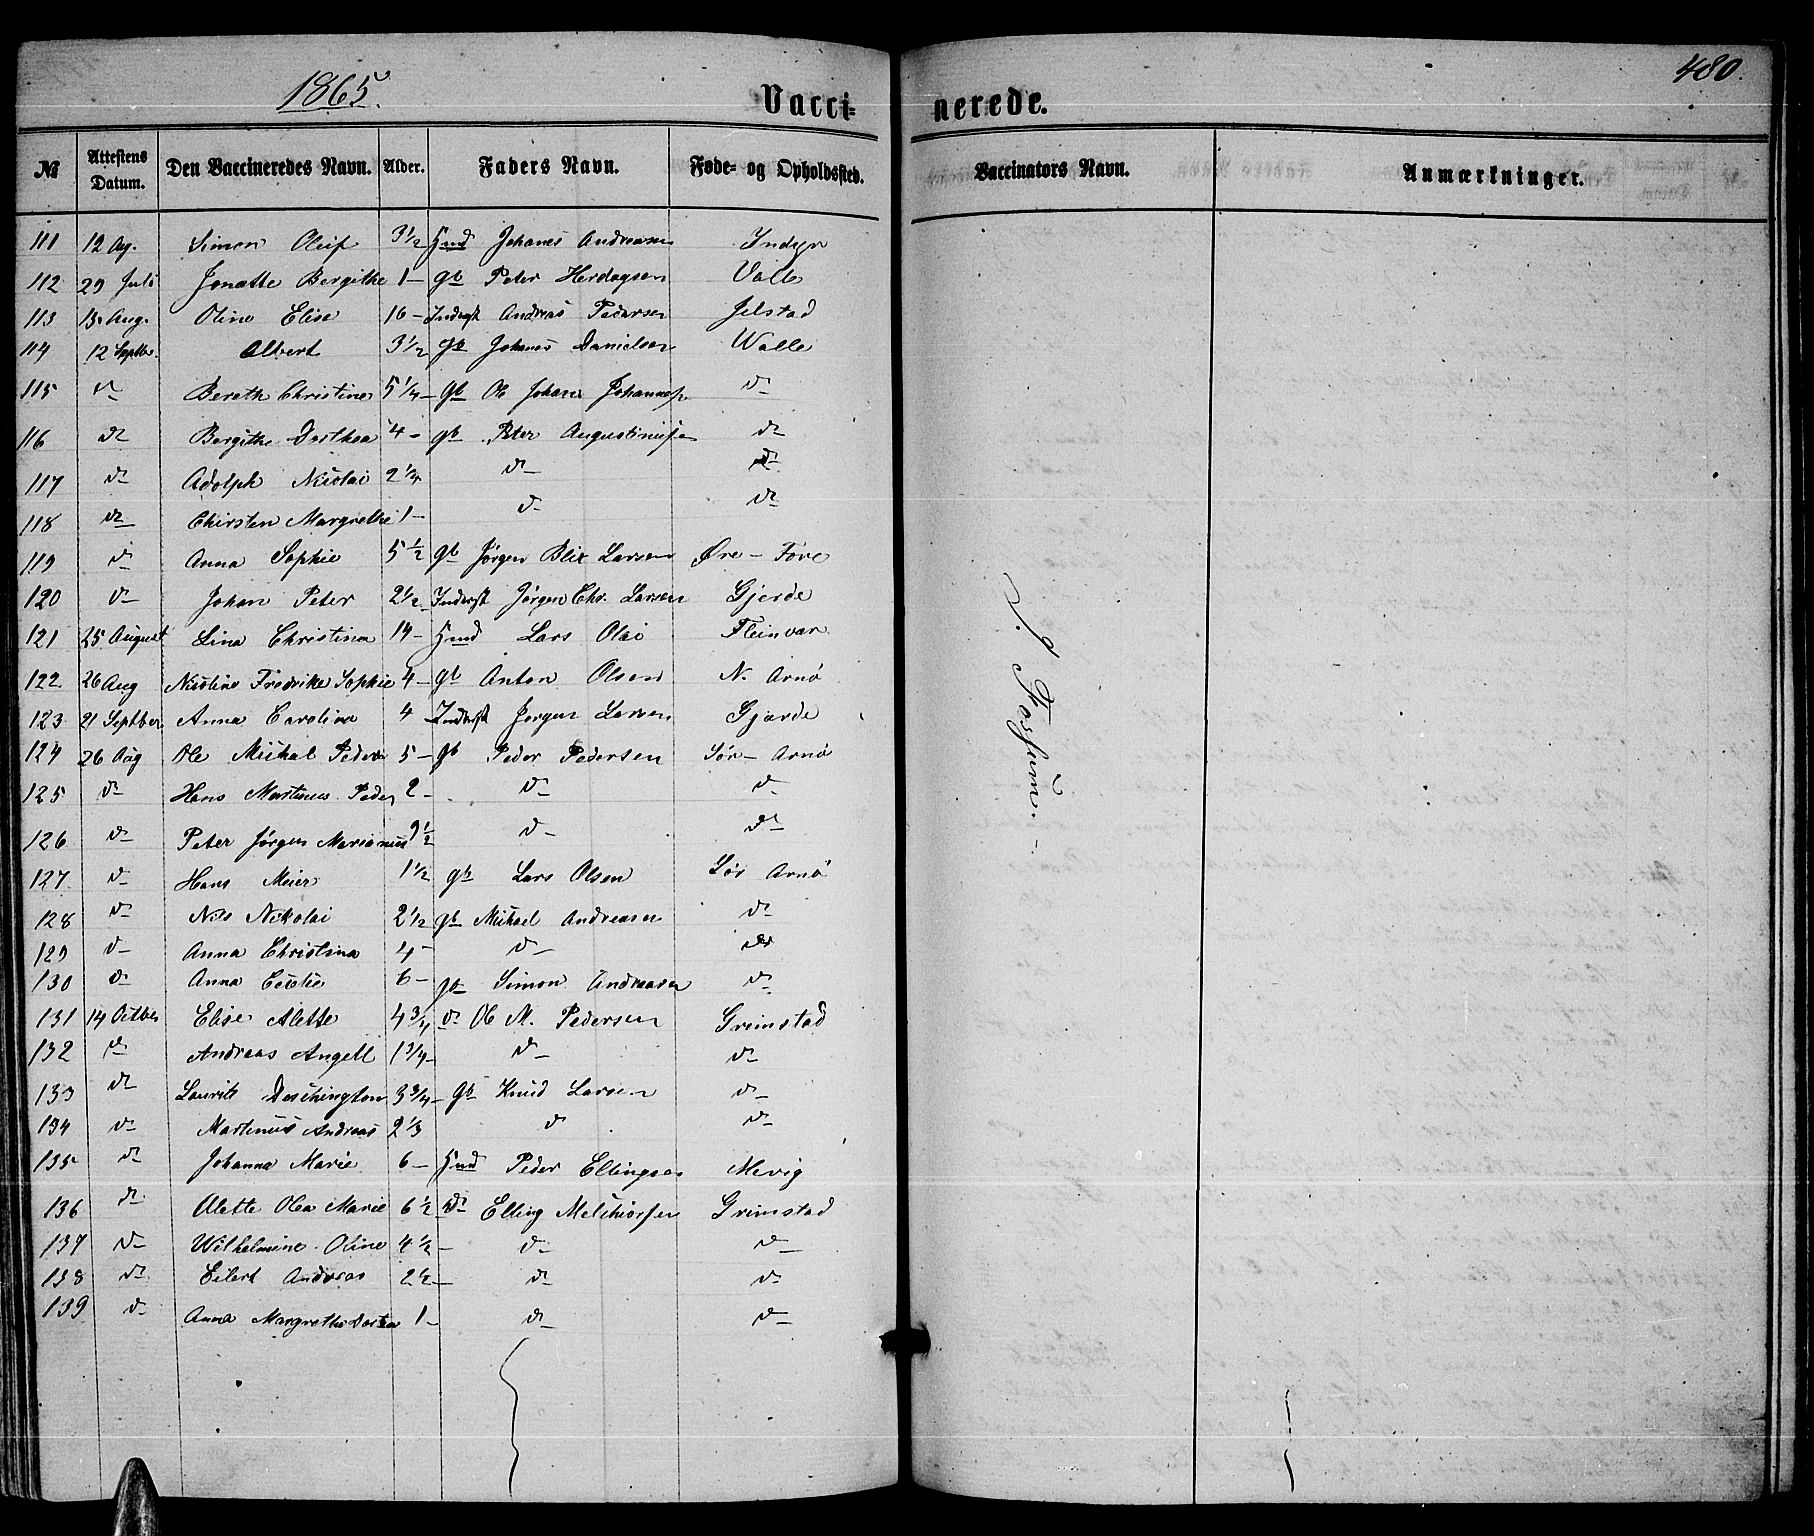 1865.
480.
Vacci-
nerede.
№ Attestens Datum. Den Vaccineredes Navn. Alder. Faders Navn. Føde- og Opholdssted. Vaccinators Navn. Anmærkninger.
111 12 Aug. Simon Oleif 3½ Huusmd Johanes Andreasen Indyr
112 29 Juli Jonette Bergithe 1 – gb Peter Herdagsen Valle
113 15 Aug. Oline Elise 16 – Inderst Andreas Pedersen Jelstad
114 12 Septbr. Albert 3½ gb Johanes Danielsen Walle
115 d– Bereth Christine 5¼ – gb Ole Johan Johannes. d–
116 d– Bergithe Dorthea 4 – gb Peter Augustinusen d–
117 d– Adolph Nicolai 2¼ d– d–
118 d– Chirsten Margrethe 1 – d– d–
119 d– Anna Sophie 5½ gb Jørgen Blix Larsen Øre – Fore
120 d– Johan Peter 2½ Inderst Jørgen Chr. Larsen Gjerde
121 25 August Lina Christina 14 – Hmd Lars Olai Fleinvær
122 26 Aug Nicoline Fredrike Sophie 4 – gb Anton Olsen N. Arnø
123 21 Septber Anna Carolina 4 Inderst Jørgen Larsen Gjerde
124 26 Aug Ole Mickal Peder 5 – gb Peder Pedersen Sør – Arnø
125 d– Hans Martinus Peder 2 – d– d–
126 d– Peter Jørgen Marionus 9½ d– d–
127 d– Hans Meier 1½ gb Lars Olsen Sør Arnø
128 d– Nils Nikolai 2½ gb Mickael Andreasen d–
129 d– Anna Christina 4 – d– d–
130 d– Anna 6 – gb Simon Andreasen d–
131 14 Octber Elise Alette 4¾ d– Ole M. Pedersen Grimstad
132 d– Andreas Angell 1¾ – d– d–
133 d– Laurits Deschington 3¾ – gb Knud Larsen d–
134 d– Martinus Andreas 2⅓ d d–
135 d– Johanna Marie 6 – Hmd Peder Ellingsen Mevig
136 d– Alette Olea Marie 6½ d– Elling Melchiorsen Grimstad
137 d– Wilhelmine Oline 4½ – d– d–
138 d– Eilert Andreas 2½ – d– d–
139 d– Anna Margrethe Dortea 1 – d– d–
J. Fossum. –